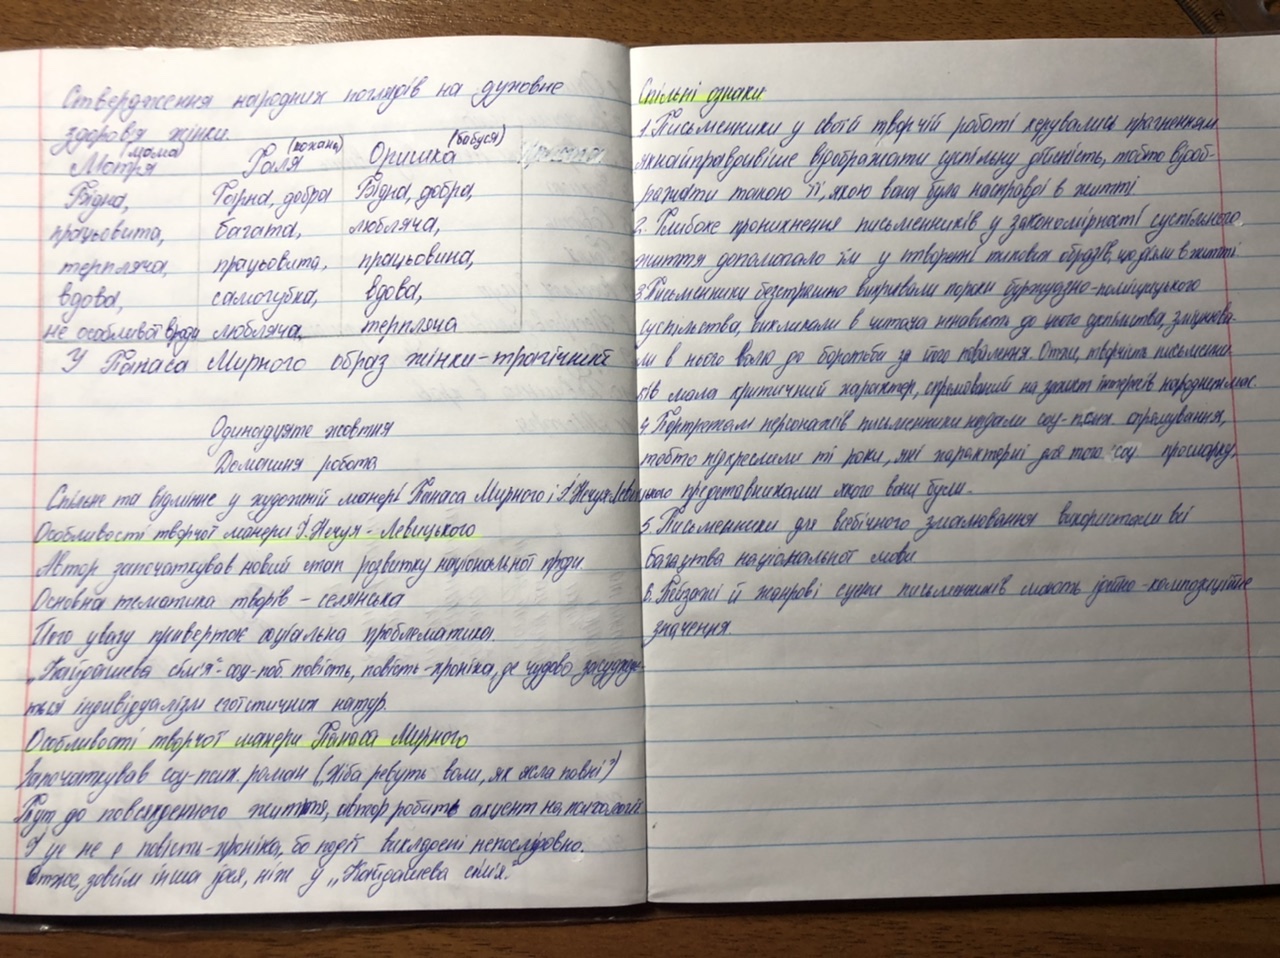 Ствердження народних поглядів на духовне
здоров'я жінки.
Мотря (мама) Галя (кохана) Оришка (бабуся)
Бідна, Гарна, добра Бідна, добра,
працьовита, багата, любляча,
терпляча, працьовита, працьовита,
вдова, самогубка, вдова,
не особливої вроди любляча терпляча
У Панаса Мирного образ жінки-трагічний
Одинадцяте жовтня
Домашня робота
Спільне та відмінне у художній манері Панаса Мирного і І.Нечуя-Левицького
Особливості творчої манери І.Нечуя-Левицького
Автор започаткував новий етап розвитку національної прози
Основна тематика творів - селянська
Його увагу привертає соціальна проблематика.
"Кайдашева сім'я"-соц-поб. повість, повість-хроніка, де чудово засуджу-
ться індивідуалізм егоїстичних натур.
Особливості творчої манери Панаса Мирного
Започаткував соц-псих. роман ("Хіба ревуть воли, як ясла повні?")
Тут до повсякденного життя, автор робить акцент на психології
І це не є повість-хроніка, бо події викладені непослідовно.
Отже, зовсім інша ідея, ніж у "Кайдашева сім'я."
Спільні ознаки
1. Письменники у своїй творчій роботі керувались прагненням
якнайправдивіше відображати суспільну дійсність, тобто відоб-
ражати такою її, якою вона була насправді в житті
2. Глибоке проникнення письменників у закономірності суспільного
життя допомагало їм у творенні типових образів, що діяли в житті
3. Письменники безстрашно викривали пороки буржуазно-поміщицького
суспільства, викликали в читача ненависть до цього суспільства, зміцнюва-
ли в нього волю до боротьби за його повалення. Отже, творчість письменни-
ків мала критичний характер, спрямований на захист інтересів народних мас.
4. Портретам персонажів письменники надали соц-псих. спрямування,
тобто підкреслили ті риси, які характерні для того соц. прошарку,
представниками якого вони були.
5. Письменники для всебічного змалювання використали всі
багатства національної мови
6. Пейзажі й жанрові сцени письменників мають ідейно-композиційне
значення.